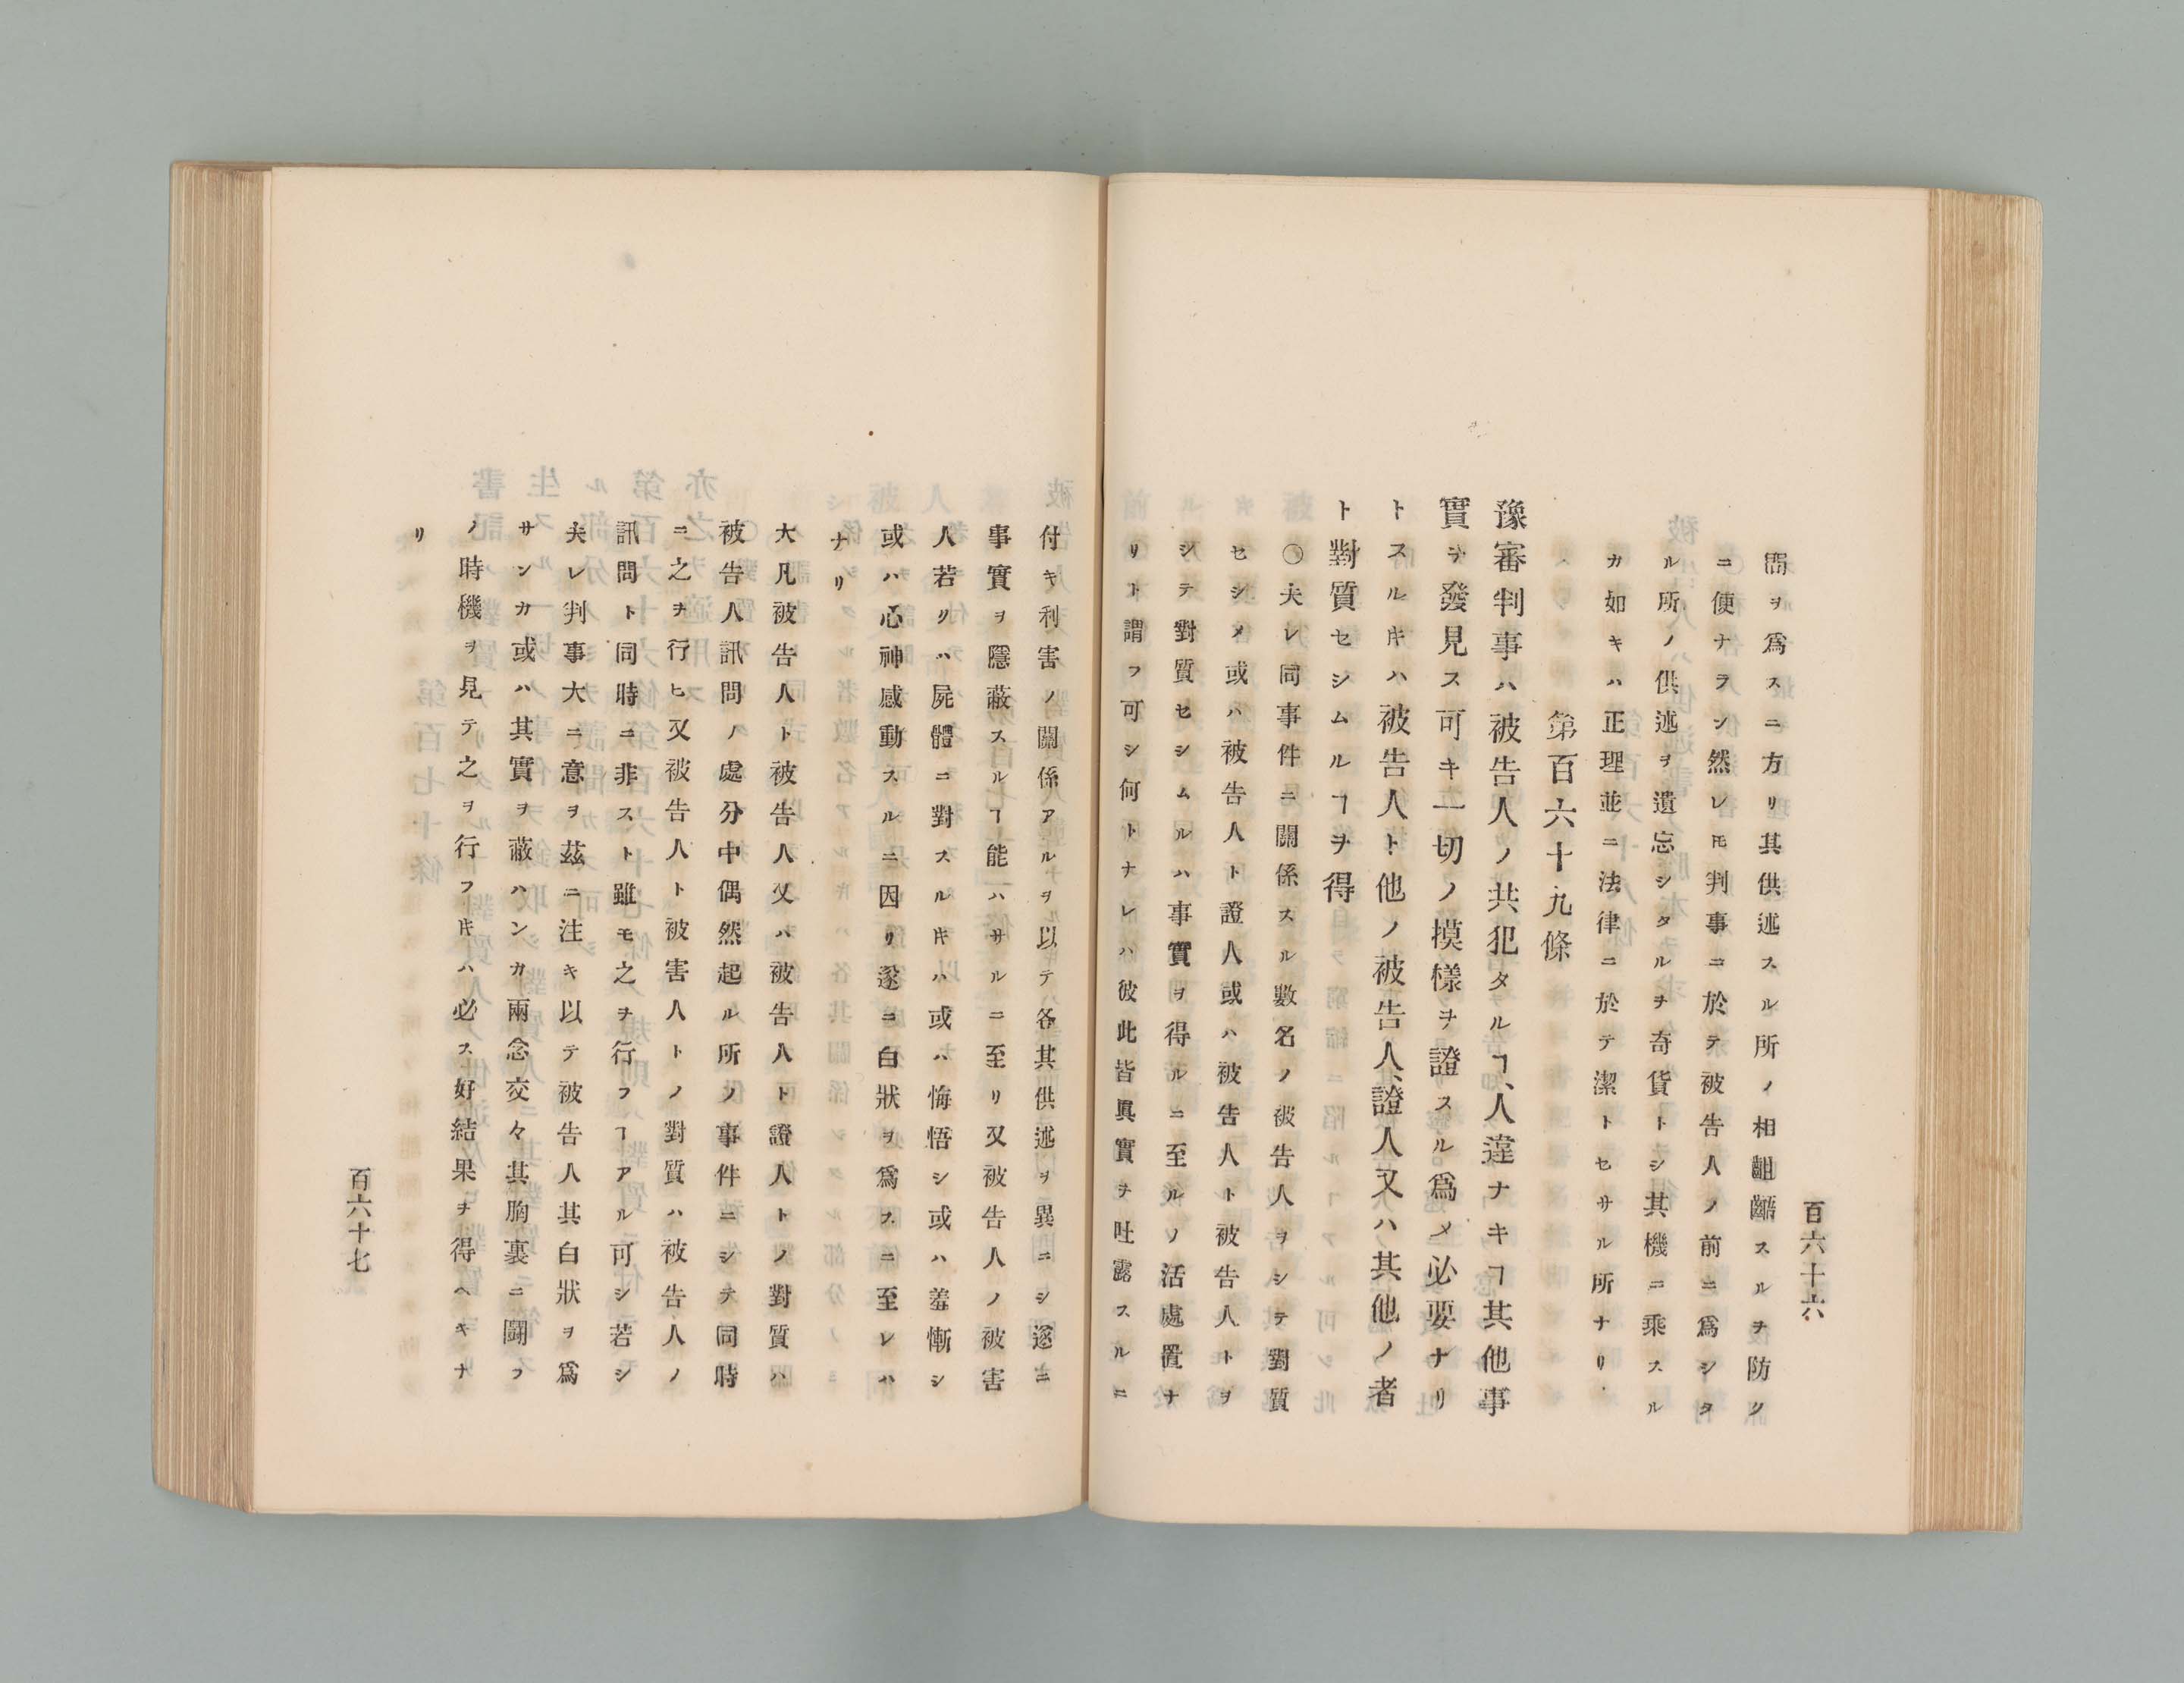 百六十六
閤ヲ爲スニ方リ其供述スル所ノ相齟齬スルヲ防クニ
ニ便ナラシ然レ𪜈判事ニ於テ被告人ノ前ニ爲シタ
ル所ノ供述ヲ遺忘シタルヲ奇貨トシ其機ニ乘スル
カ如キハ正理並ニ法律ニ於テ潔トセサル所ナリ
第百六十九條
豫審判事ハ被告人ノ共犯タルヿ、人違ナキヿ其他事
實ヲ發見ス可キ一切ノ摸樣ヲ證スル爲メ必要ナリ
トスルキハ被告人ト他ノ被告人、證人又ハ其他ノ者
ト對質セシムルヿヲ得
〇夫レ同事件ニ關係スル數名ノ被告人ヲシテ對質
セシメ或ハ被告人ト證人或ハ被告人ト被告人トヲ
シテ對質セシムルハ事實ヲ得ルニ至ルノ活處置ナ
リト謂フ可シ何トナレハ彼此皆眞實ヲ吐露スルニ
付キ利害ノ關係アルヲ以テ各其供述ヲ異ニシ遂ニ
事實ヲ隱蔽スルヿ能ハサルニ至リ又被告人ノ被害
人若リハ屍體ニ對スルキハ或ハ悔悟シ或ハ羞慚シ
或ハ心神感動スルニ因リ遂ニ白狀ヲ爲スニ至レハ
ナリ
大凡被告人ト被告人又ハ被告人ト證人トノ對質ハ
被告人訊問ノ處分中偶然起ル所ノ事件ニシテ同時
ニ之ヲ行ヒ又被告人ト被害人トノ對質ハ被告人ノ
訊問ト同時ニ非スト雖モ之ヲ行フヿアル可シ若シ
夫レ判事大ニ意ヲ茲ニ注キ以テ被告人其白狀ヲ爲
サンカ或ハ其實ヲ蔽ハンカ兩念交々其胸裏ニ鬪フ
ノ時機ヲ見テ之ヲ行フキハ必ス好結果ヲ得ヘキナ
リ
百六十七